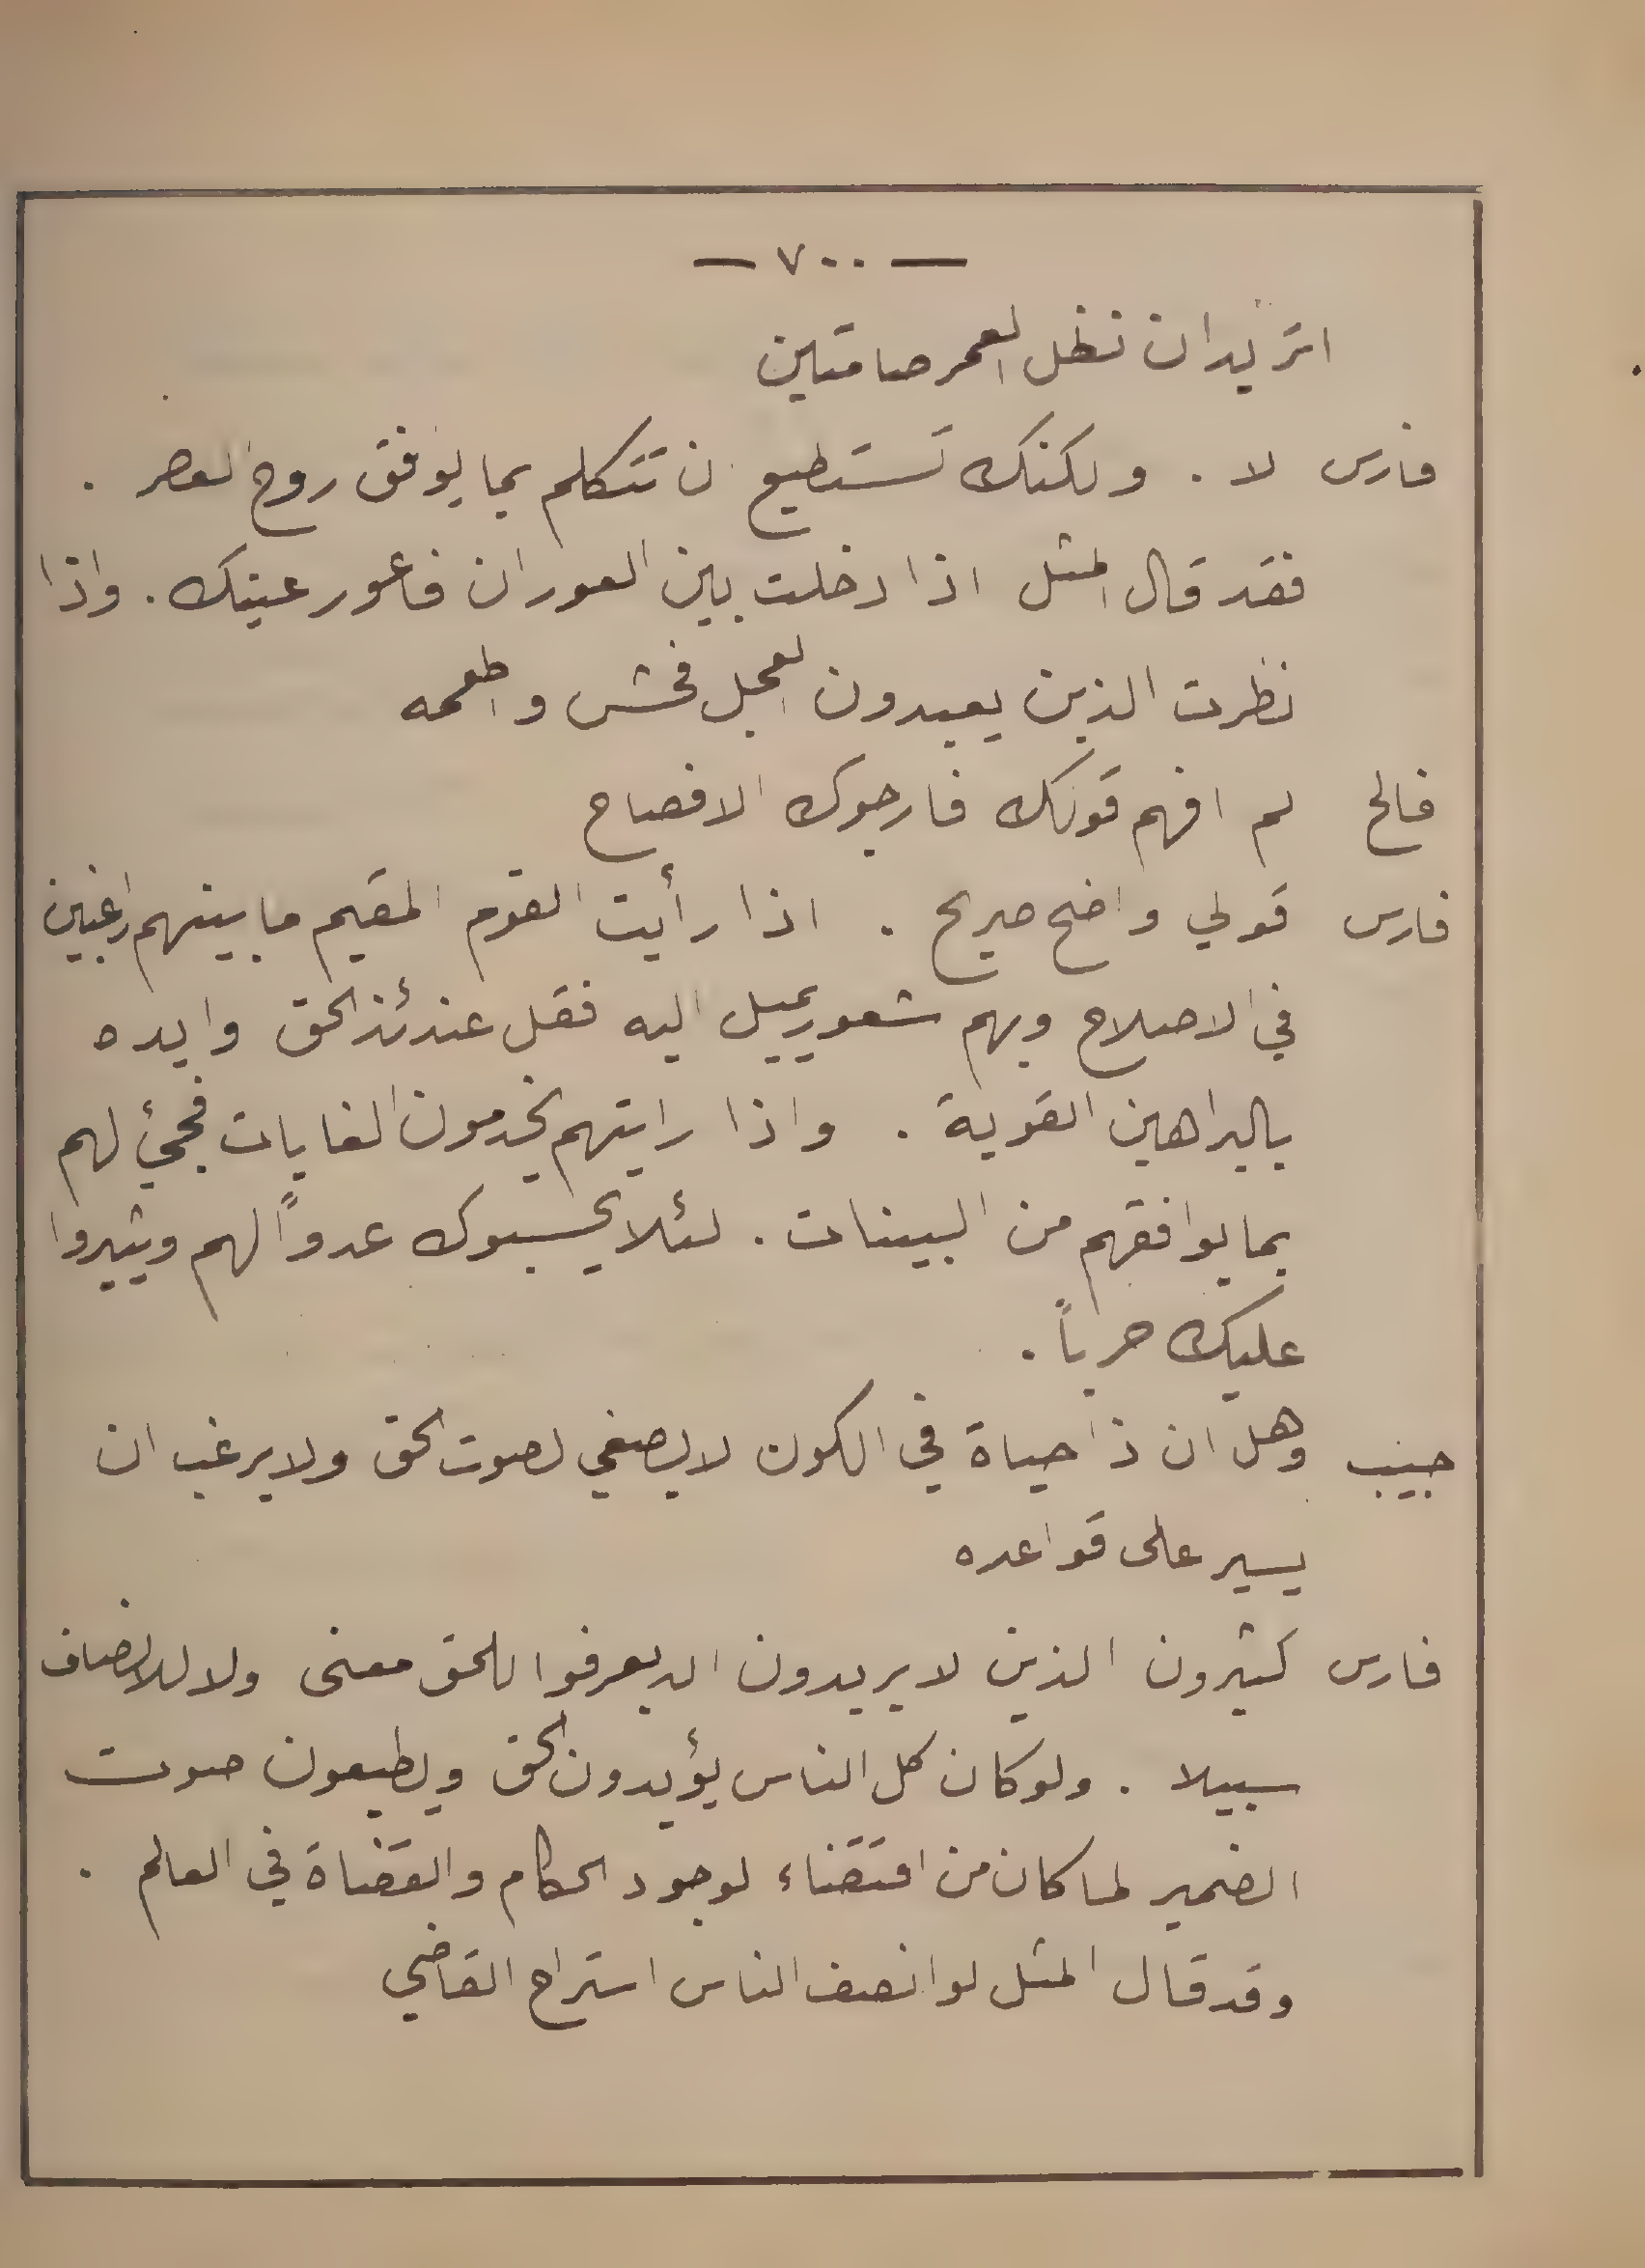 — ٧٠٠ —
اتريد ان نظل العمر صامتين
فارس لا . ولكنك تستطيع ان تتكلم بما يوافق روح العصر .
فقد قال المثل اذا دخلت بين العوران فاعور عينك . واذا
نظرت الذين يعبدون العجل فحش واطعمه
فالح لم افهم قولك فارجوك الافصاح
فارس قولي واضح صريح . اذا رأيت القوم المقيم ما بينهم راغبين
في الاصلاح وبهم شعور يميل اليه فقل عندئذ الحق وايده
بالبراهين القوية . واذا رايتهم يخدمون الغايات فجئ لهم
بما يوافقهم من البينات . لئلا يحسبوك عدواً لهم ويثيروا
عليك حرباً .
حبيب وهل ان ذا حياة في الكون لا يصغي لصوت الحق ولا يرغب ان
يسير على قواعده
فارس كثيرون الذين لا يريدون ان يعرفوا للحق معنى ولا للانصاف
سبيلا . ولو كان كل الناس يؤيدون الحق ويطيعون صوت
الضمير لما كان من اقتضاء لوجود الحكام والقضاة في العالم .
وقد قال المثل لو انصف الناس استراح القاضي